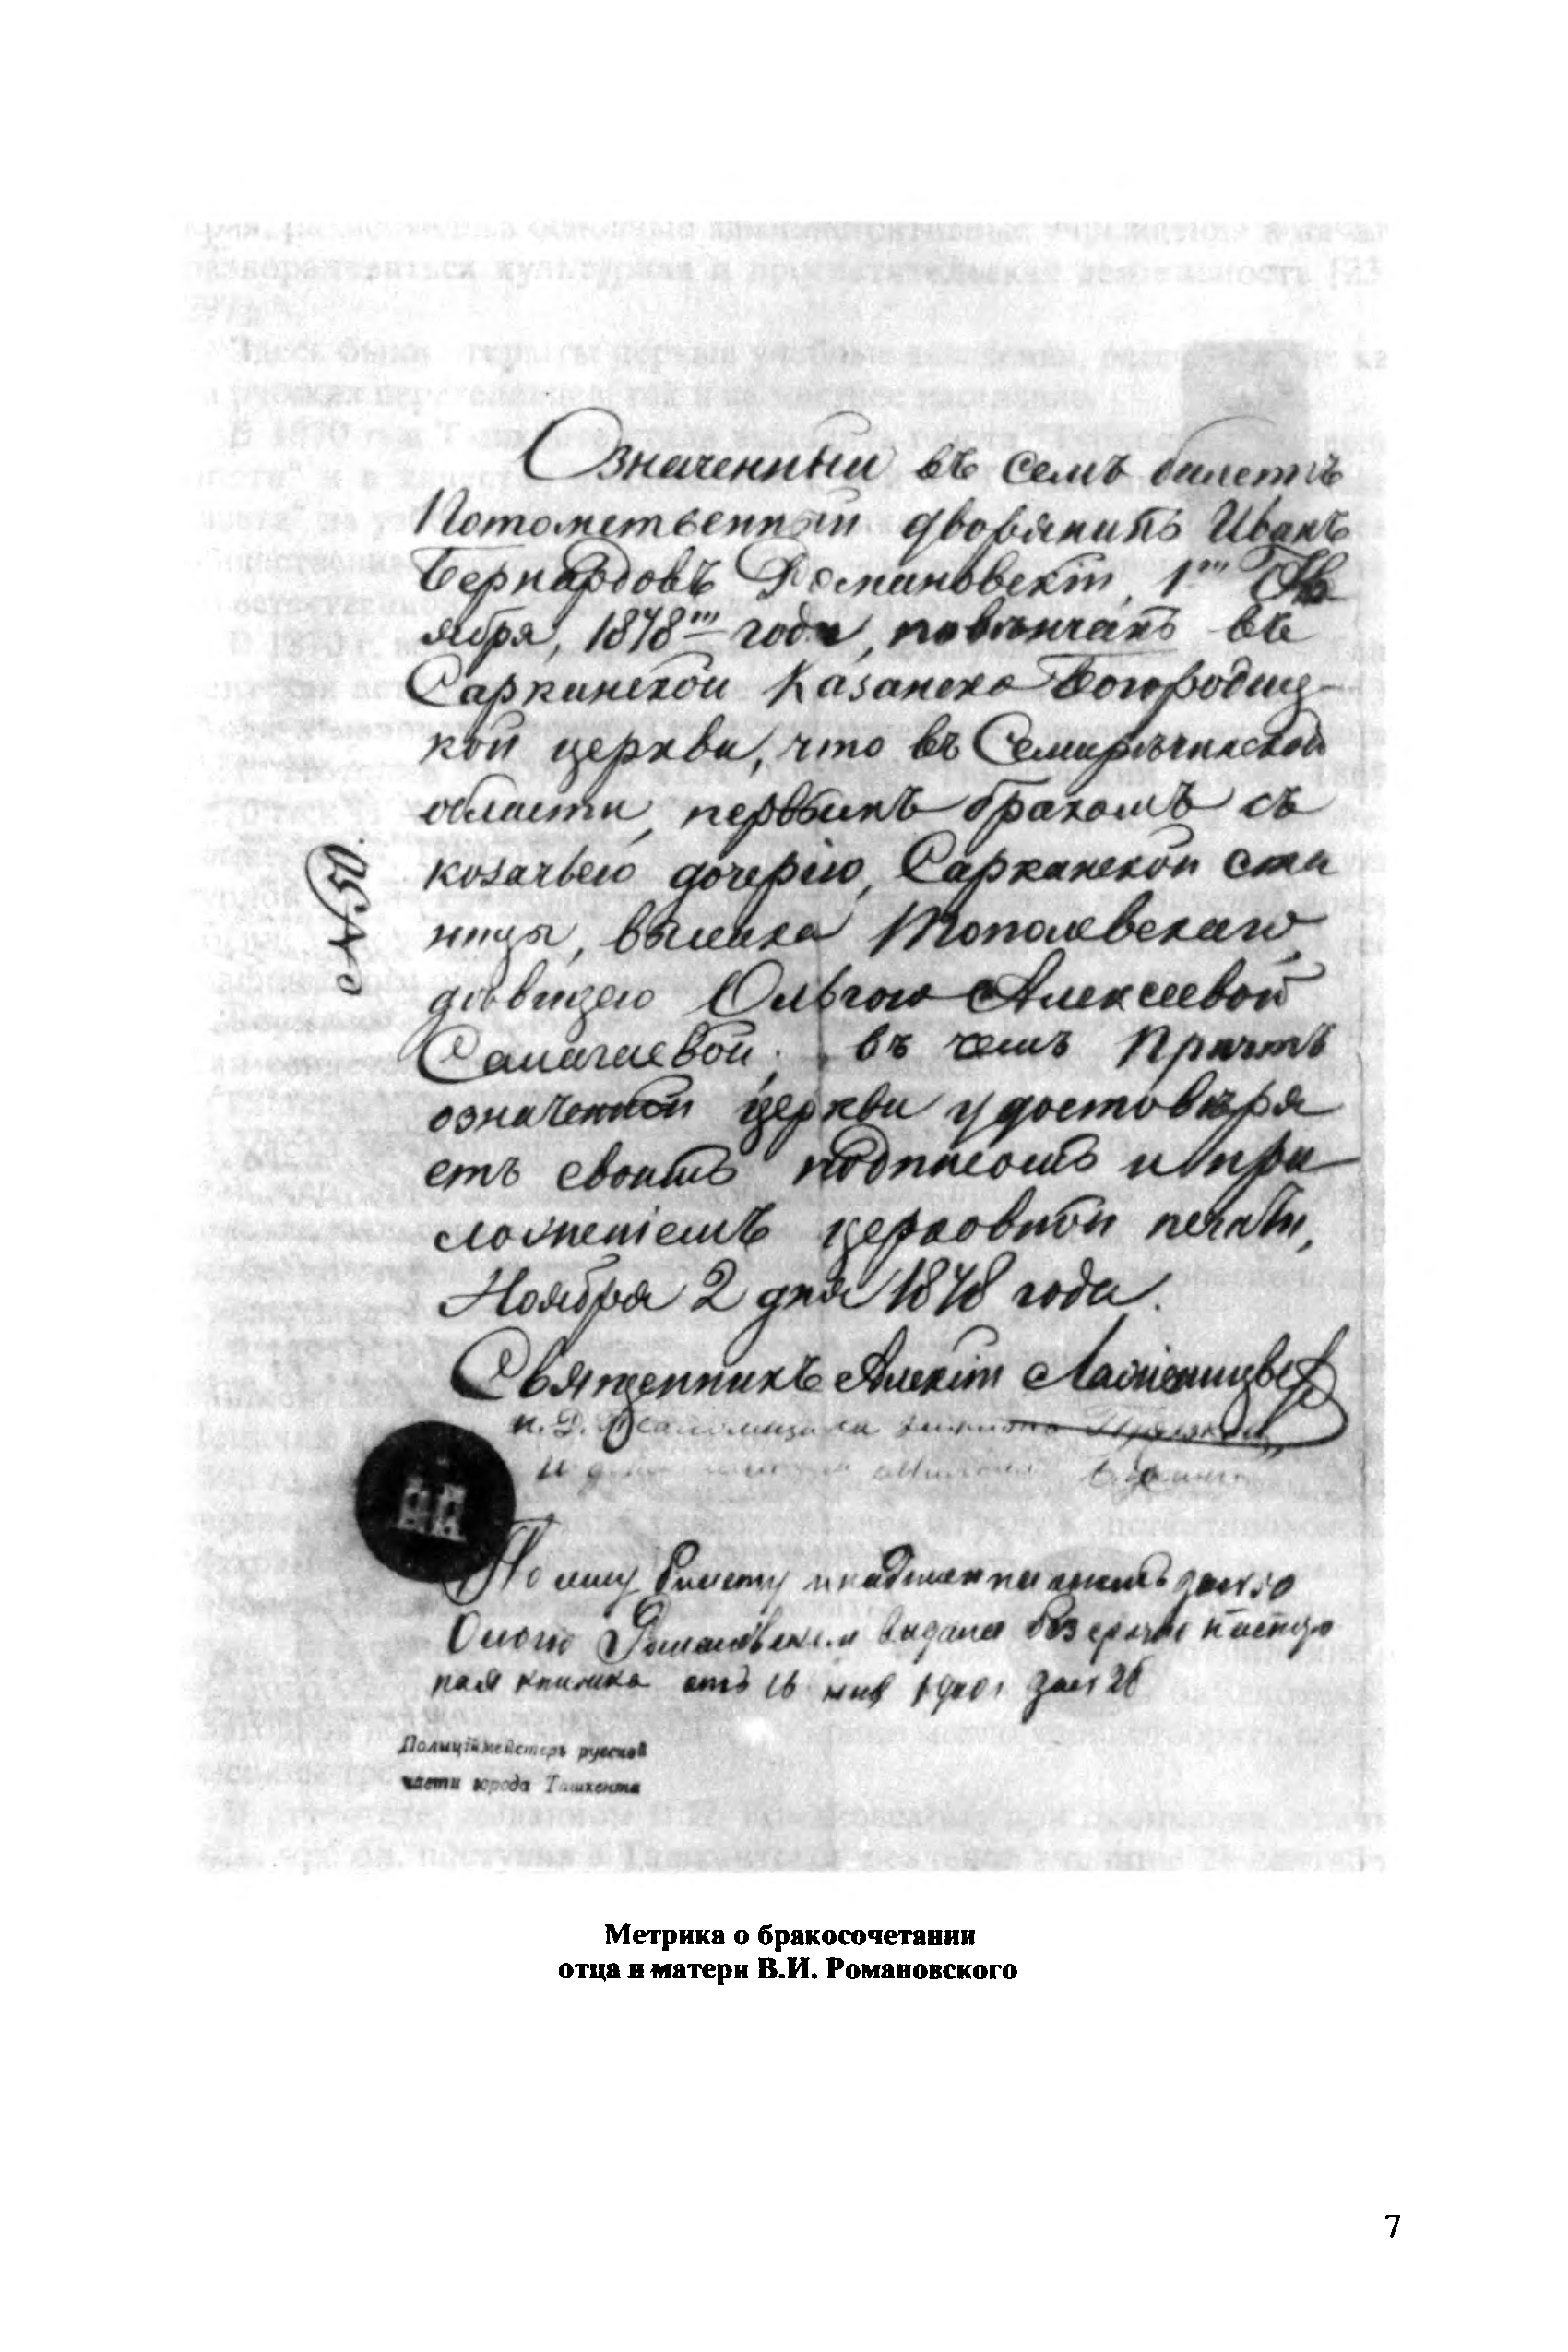 Означенный въ семъ билетѣ
Потомственный дворянинъ Иванъ
Бернардовъ Романовскій, 1го Но
ября, 1878го года, повѣнчанъ въ
Сарканской Казанско Богородиц-
кой церкви, что въ Семирѣчинской
области, первымъ бракомъ съ
козачьею дочерію, Сарканской ста
ницы, выселка Тополевскаго
дѣвицею Ольгою Алексеевой
въ чемъ Причтъ
означенной церкви удостовѣря
етъ своимъ подписомъ и при
ложеніемъ церковной печати,
Ноября 2 дня 1878 года.
Священникъ Алексій
По сему билету
Романовским выдана безсрочно
ная книжка отъ 16
Полиціймейстеръ русской
части города Ташкента
Метрика о бракосочетании
отца и матери В.И. Романовского
7